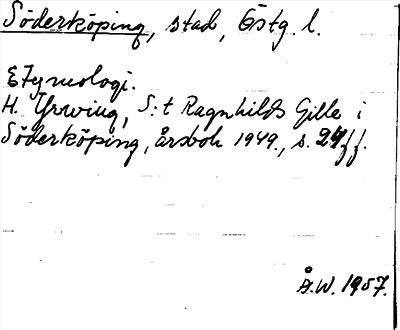 Söderköping, stad, Östg. l.
Etymologi.
H. Yrwing, S:t Ragnhilds Gille i
Söderköping, årsbok 1949., s. 24 ff.
Å.W. 1957.